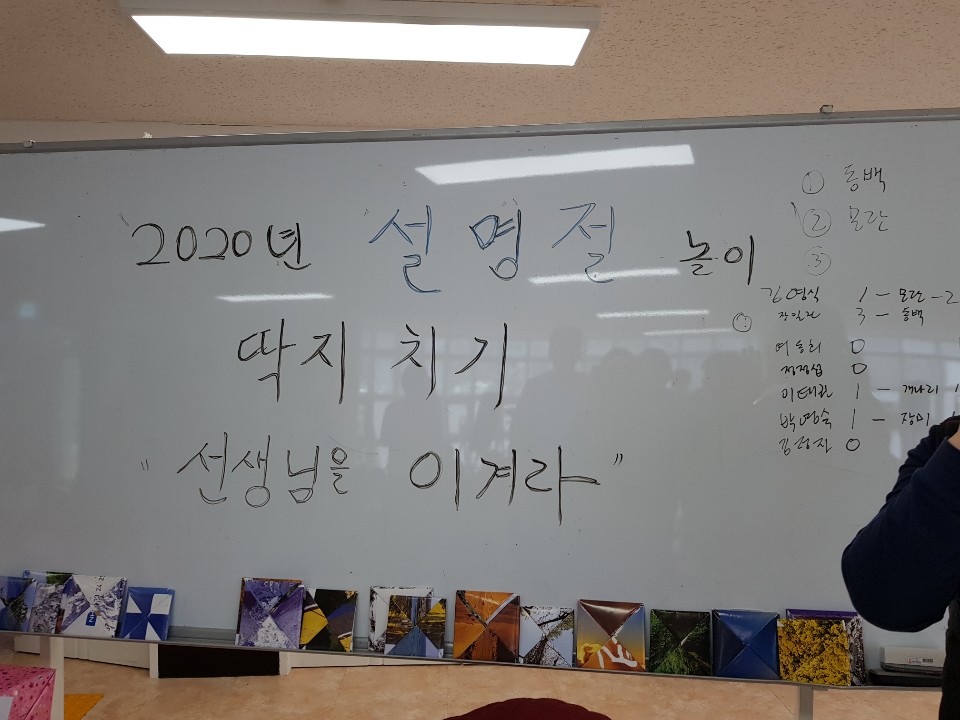 2020년 "설명절 놀이
딱지치기
"선생님을 이겨라"
① 동백
② 모란
③
김영식 1 - 모란 - 2
3 - 동백
여동희 0
정정섭 0
이태권 1 - 개나리 1
박명숙 1 - 장미
김정자 0